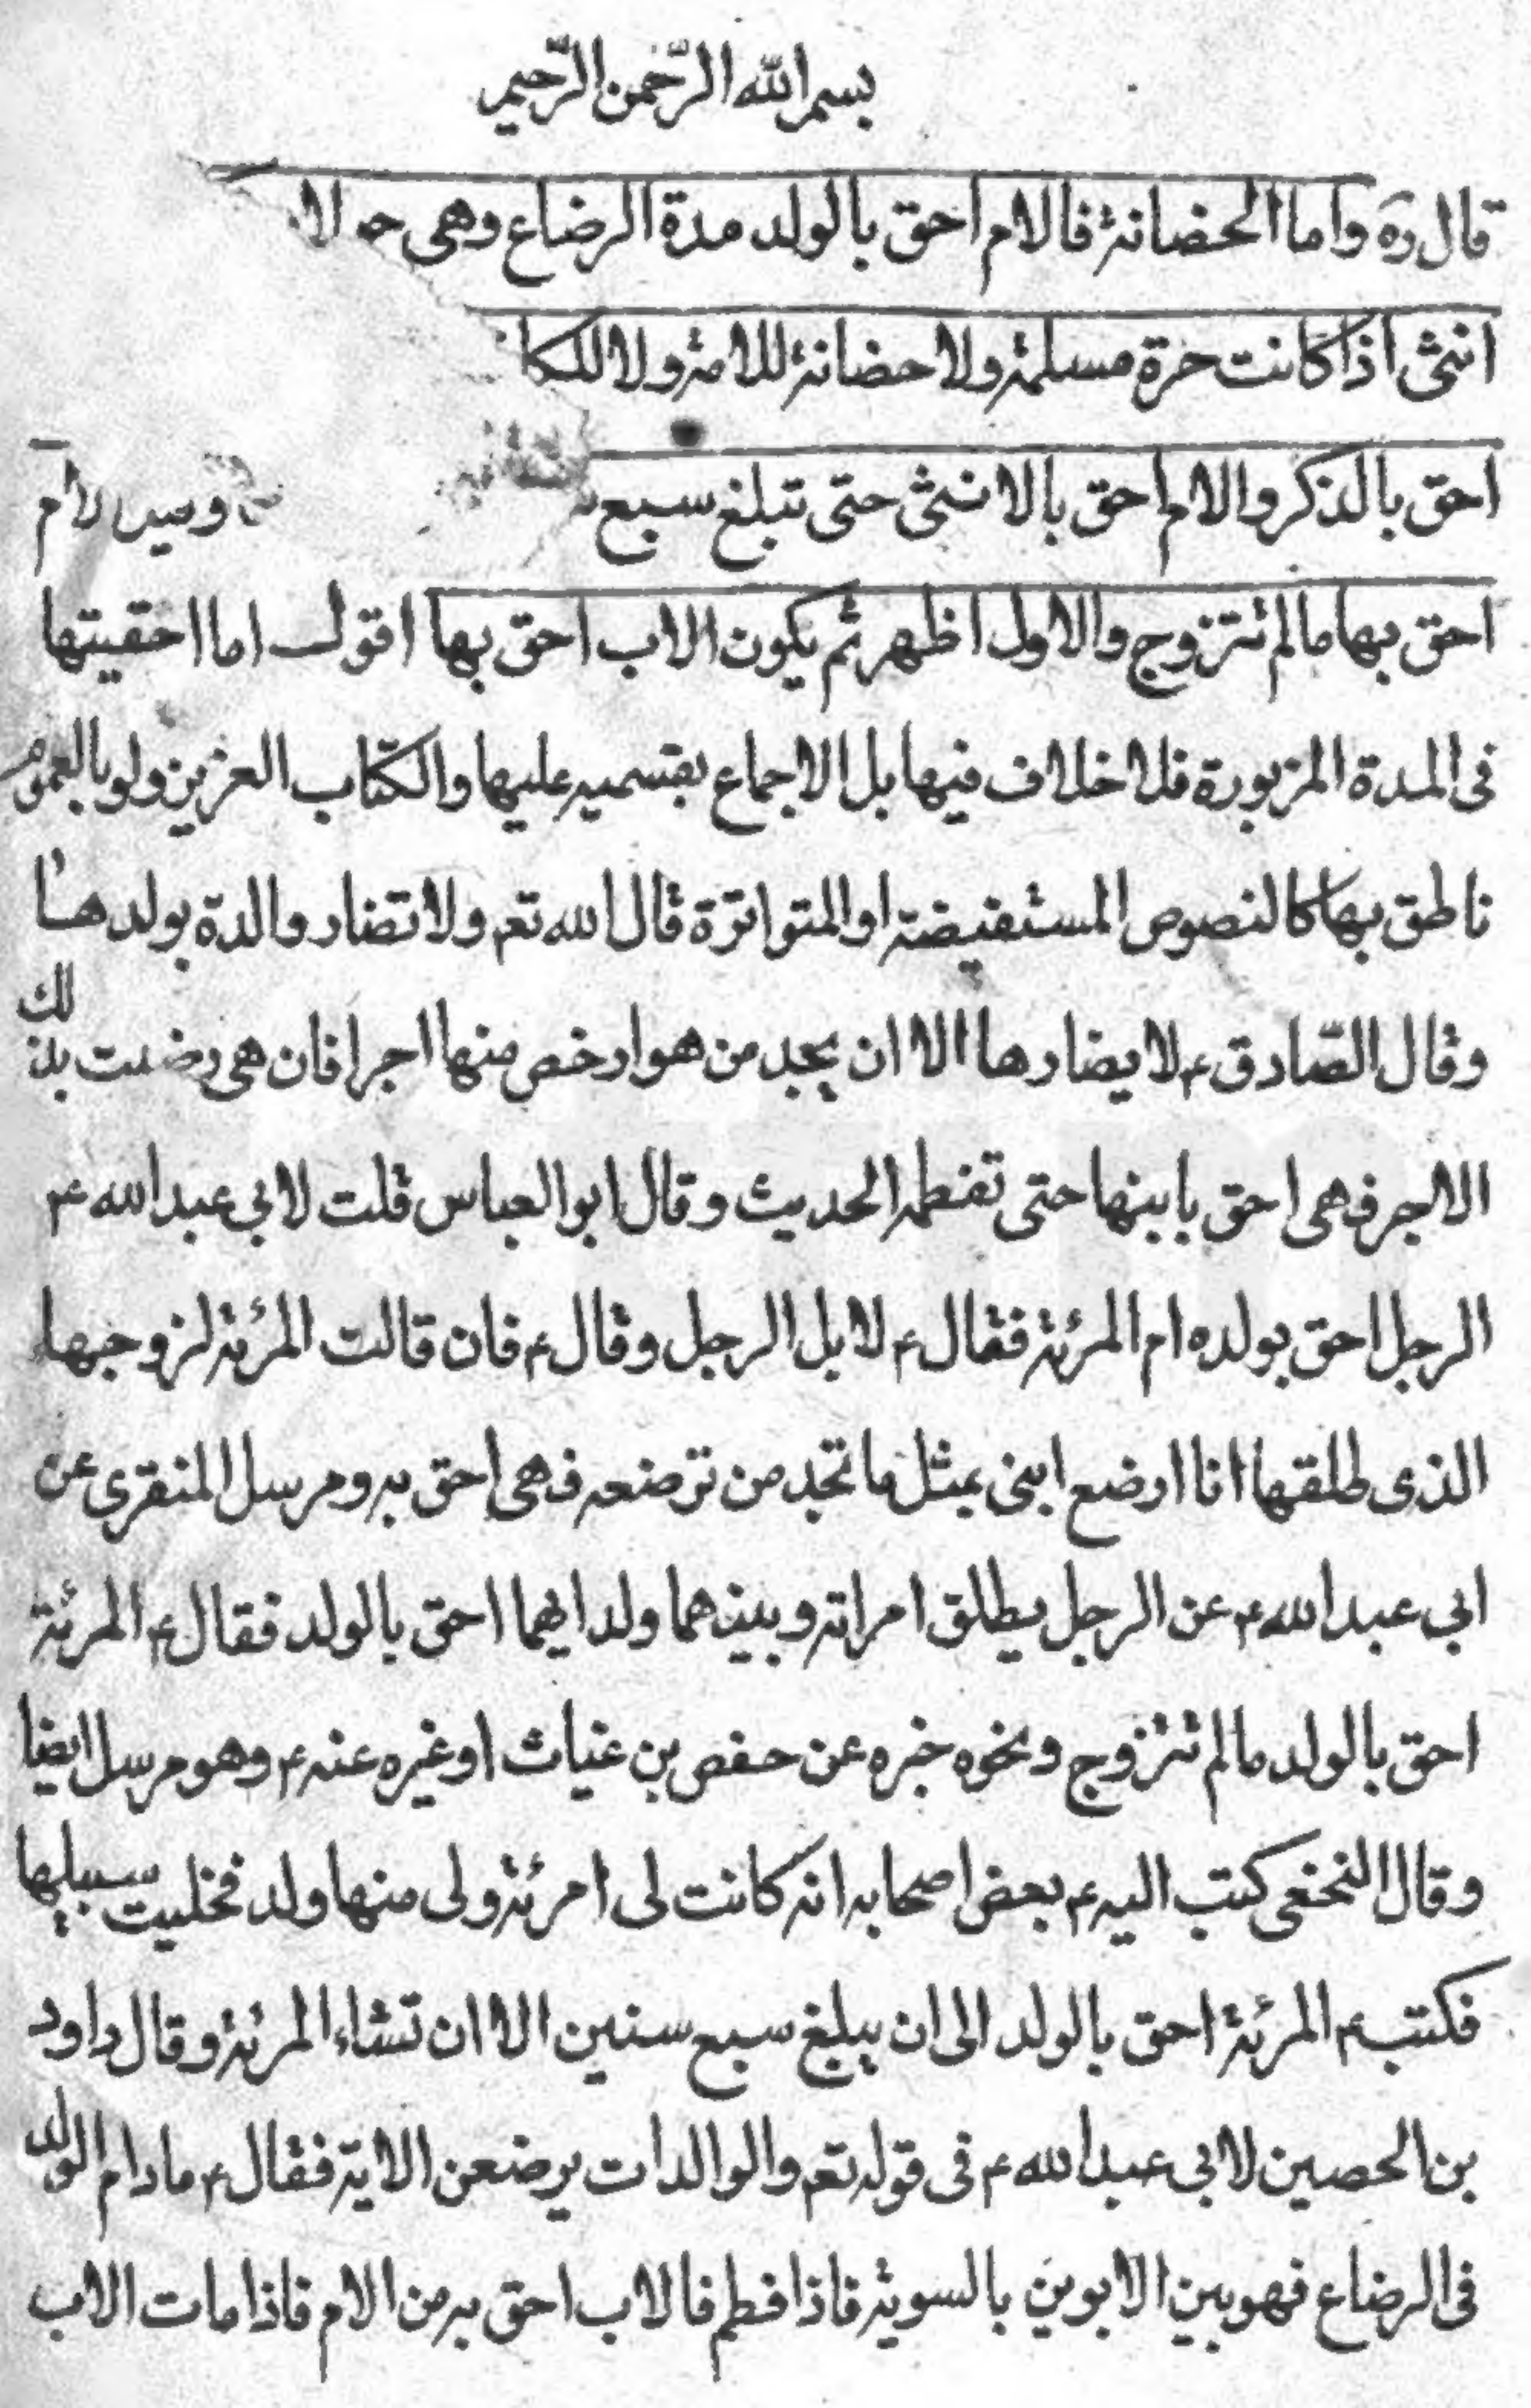 بسم الله الرّحمن الرّحيم
قال ره واما الحضانة فالام احق بالولد مدة الرضاع وهى حولا
انثى اذا كانت حرة مسلمة ولا حضانة للامة ولا للكا
احق بالذكر والام احق بالانثى حتى تبلغ سبع الام
احق بها ما لم تتزوج والاول اظهر ثم يكون الاب احق بها اقول اما احقيتها
فى المدة المزبورة فلا خلاف فيها بل الاجماع بقسميه عليها والكتاب العزيز ولو بالعموم
ناطق بها كالنصوص المستفيضة او المتواترة قال الله تعم ولا تضار والدة بولدها
وقال الصّادق ع لا يضارها الا ان يجد من هو ارخص منها اجرا فان هى رضيت بذلك
الاجر فهى احق بابنها حتى تفطمه الحديث وقال ابو العباس قلت لابي عبد الله ع
الرجل احق بولده ام المرئة فقال ع لا بل الرجل وقال ع فان قالت المرئة لزوجها
الذى طلقها انا ارضع ابنى بمثل ما تجد من ترضعه فهى احق به ومرسل المنقرى عن
ابي عبد الله ع عن الرجل يطلق امراته وبينهما ولد ايهما احق بالولد فقال ع المرئة
احق بالولد ما لم تتزوج ونحوه خبره عن حفص بن غياث او غيره عنه ع وهو مرسل ايضا
وقال النخعى كتب اليه ع بعض اصحابه انه كانت لى امرئة ولى منها ولد فخليت سبيلها
فكتب ع المرئة احق بالولد الى ان يبلغ سبع سنين الا ان تشاء المرئة وقال داود
بن الحصين لابي عبد الله ع فى قوله تعم والوالدات يرضعن الاية فقال ع مادام الولد
فى الرضاع فهو بين الابوين بالسوية فاذا فطم فالاب احق به من الام فاذا مات الاب